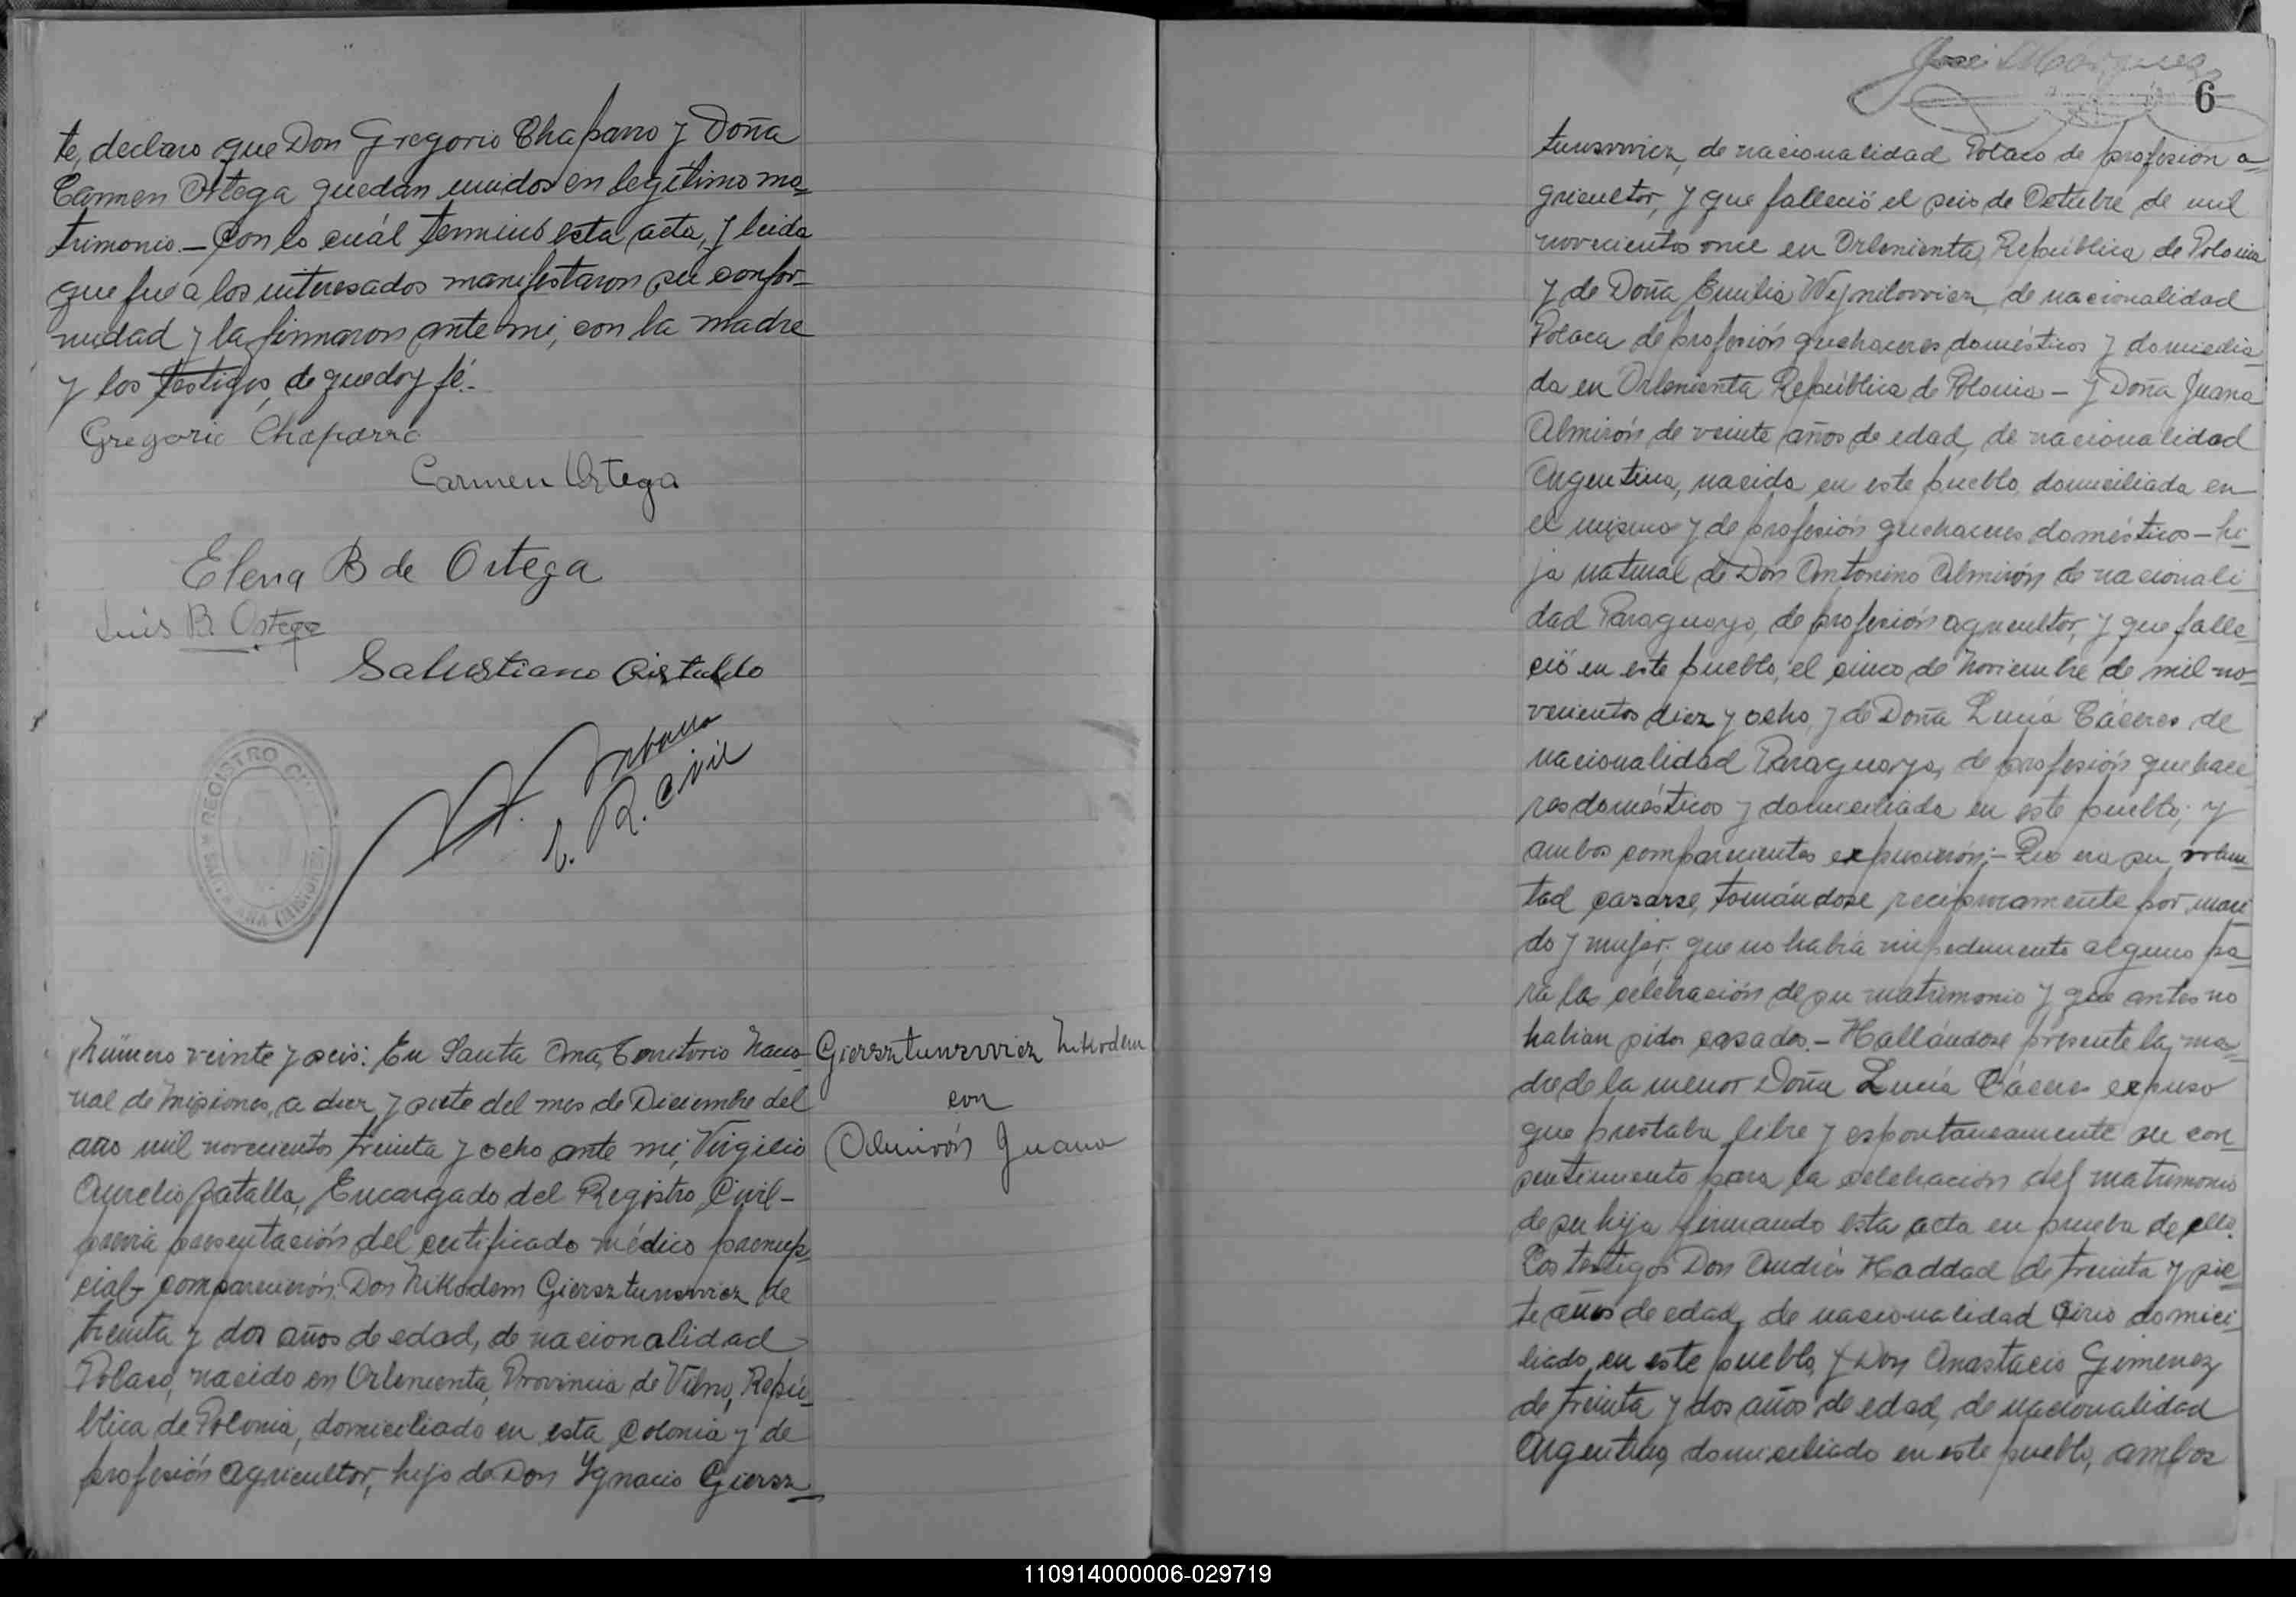 te, declaro que Don Gregorio Chaparro y Doña
Carmen Ortega quedan unidos en legítimo ma-
trimonio.— Con lo cuál terminó esta acta, y leida
que fué a los interesados manifestaron su confor-
midad y la firmaron ante mi, con la madre
y los testigos, de que doy fé.-
Gregorio Chaparro
Carmen Ortega
Elena B de Ortega
Luis B. Ortega
Salustiano
E. R. Civil
REGISTRO CIVIL
SANTA ANA (MISIONES)
Número veinte y seis: En Santa Ana, Territorio Nacio-
nal de Misiones, a diez y siete del mes de Diciembre del
año mil novecientos treinta y ocho ante mi, Virgilio
Aurelio Zatalla, Encargado del Registro Civil-
previa presentación del certificado médico prenup-
cial- comparecieron: Don Nikodem Giersztunowicz de
treinta y dos años de edad, de nacionalidad
Polaco, nacido en Orlenienta, Provincia de Vilno, Repú-
blica de Polonia, domiciliado en esta Colonia y de
profesión agricultor, hijo de Don Ygnacio Giersz-
Giersztunowicz Nikodem
con
Almirón Juana
José Márquez
6
tunowicz, de nacionalidad Polaco de profesión a-
gricultor, y que falleció el seis de Octubre de mil
novecientos once en Orlenienta, República de Polonia
y de Doña Emilia Wejnilowicz, de nacionalidad
Polaca de profesión quehaceres domésticos y domicilia-
da en Orlenienta República de Polonia — y Doña Juana
Almirón de veinte años de edad, de nacionalidad
Argentina, nacida en este pueblo, domiciliada en
el mismo y de profesión quehaceres domésticos — hi-
ja natural de Don Antonino Almirón de nacionali-
dad Paraguayo, de profesión agricultor, y que falle-
ció en este pueblo, el cinco de Noviembre de mil no-
vecientos diez y ocho, y de Doña Lucía Cáceres de
nacionalidad Paraguaya, de profesión quehace-
res domésticos y domiciliada en este pueblo; y
ambos comparecientes expusieron;- Que era su volun-
tad casarse, tomándose recíprocamente por mari-
do y mujer; que no había impedimento alguno pa-
ra la celebración de su matrimonio y que antes no
habian sidos casados.- Hallándose presente la ma-
dre de la menor Doña Lucía Cáceres expuso
que prestaba libre y espontaneamente su con-
sentimiento para la celebración del matrimonio
de su hija firmando esta acta en prueba de ello.
Los testigos Don Andrés Haddad de treinta y sie-
te años de edad, de nacionalidad Sirio domici-
liado en este pueblo, y Don Anastacio Gimenez
de treinta y dos años de edad, de nacionalidad
Argentino, domiciliado en este pueblo, ambos
110914000006-029719